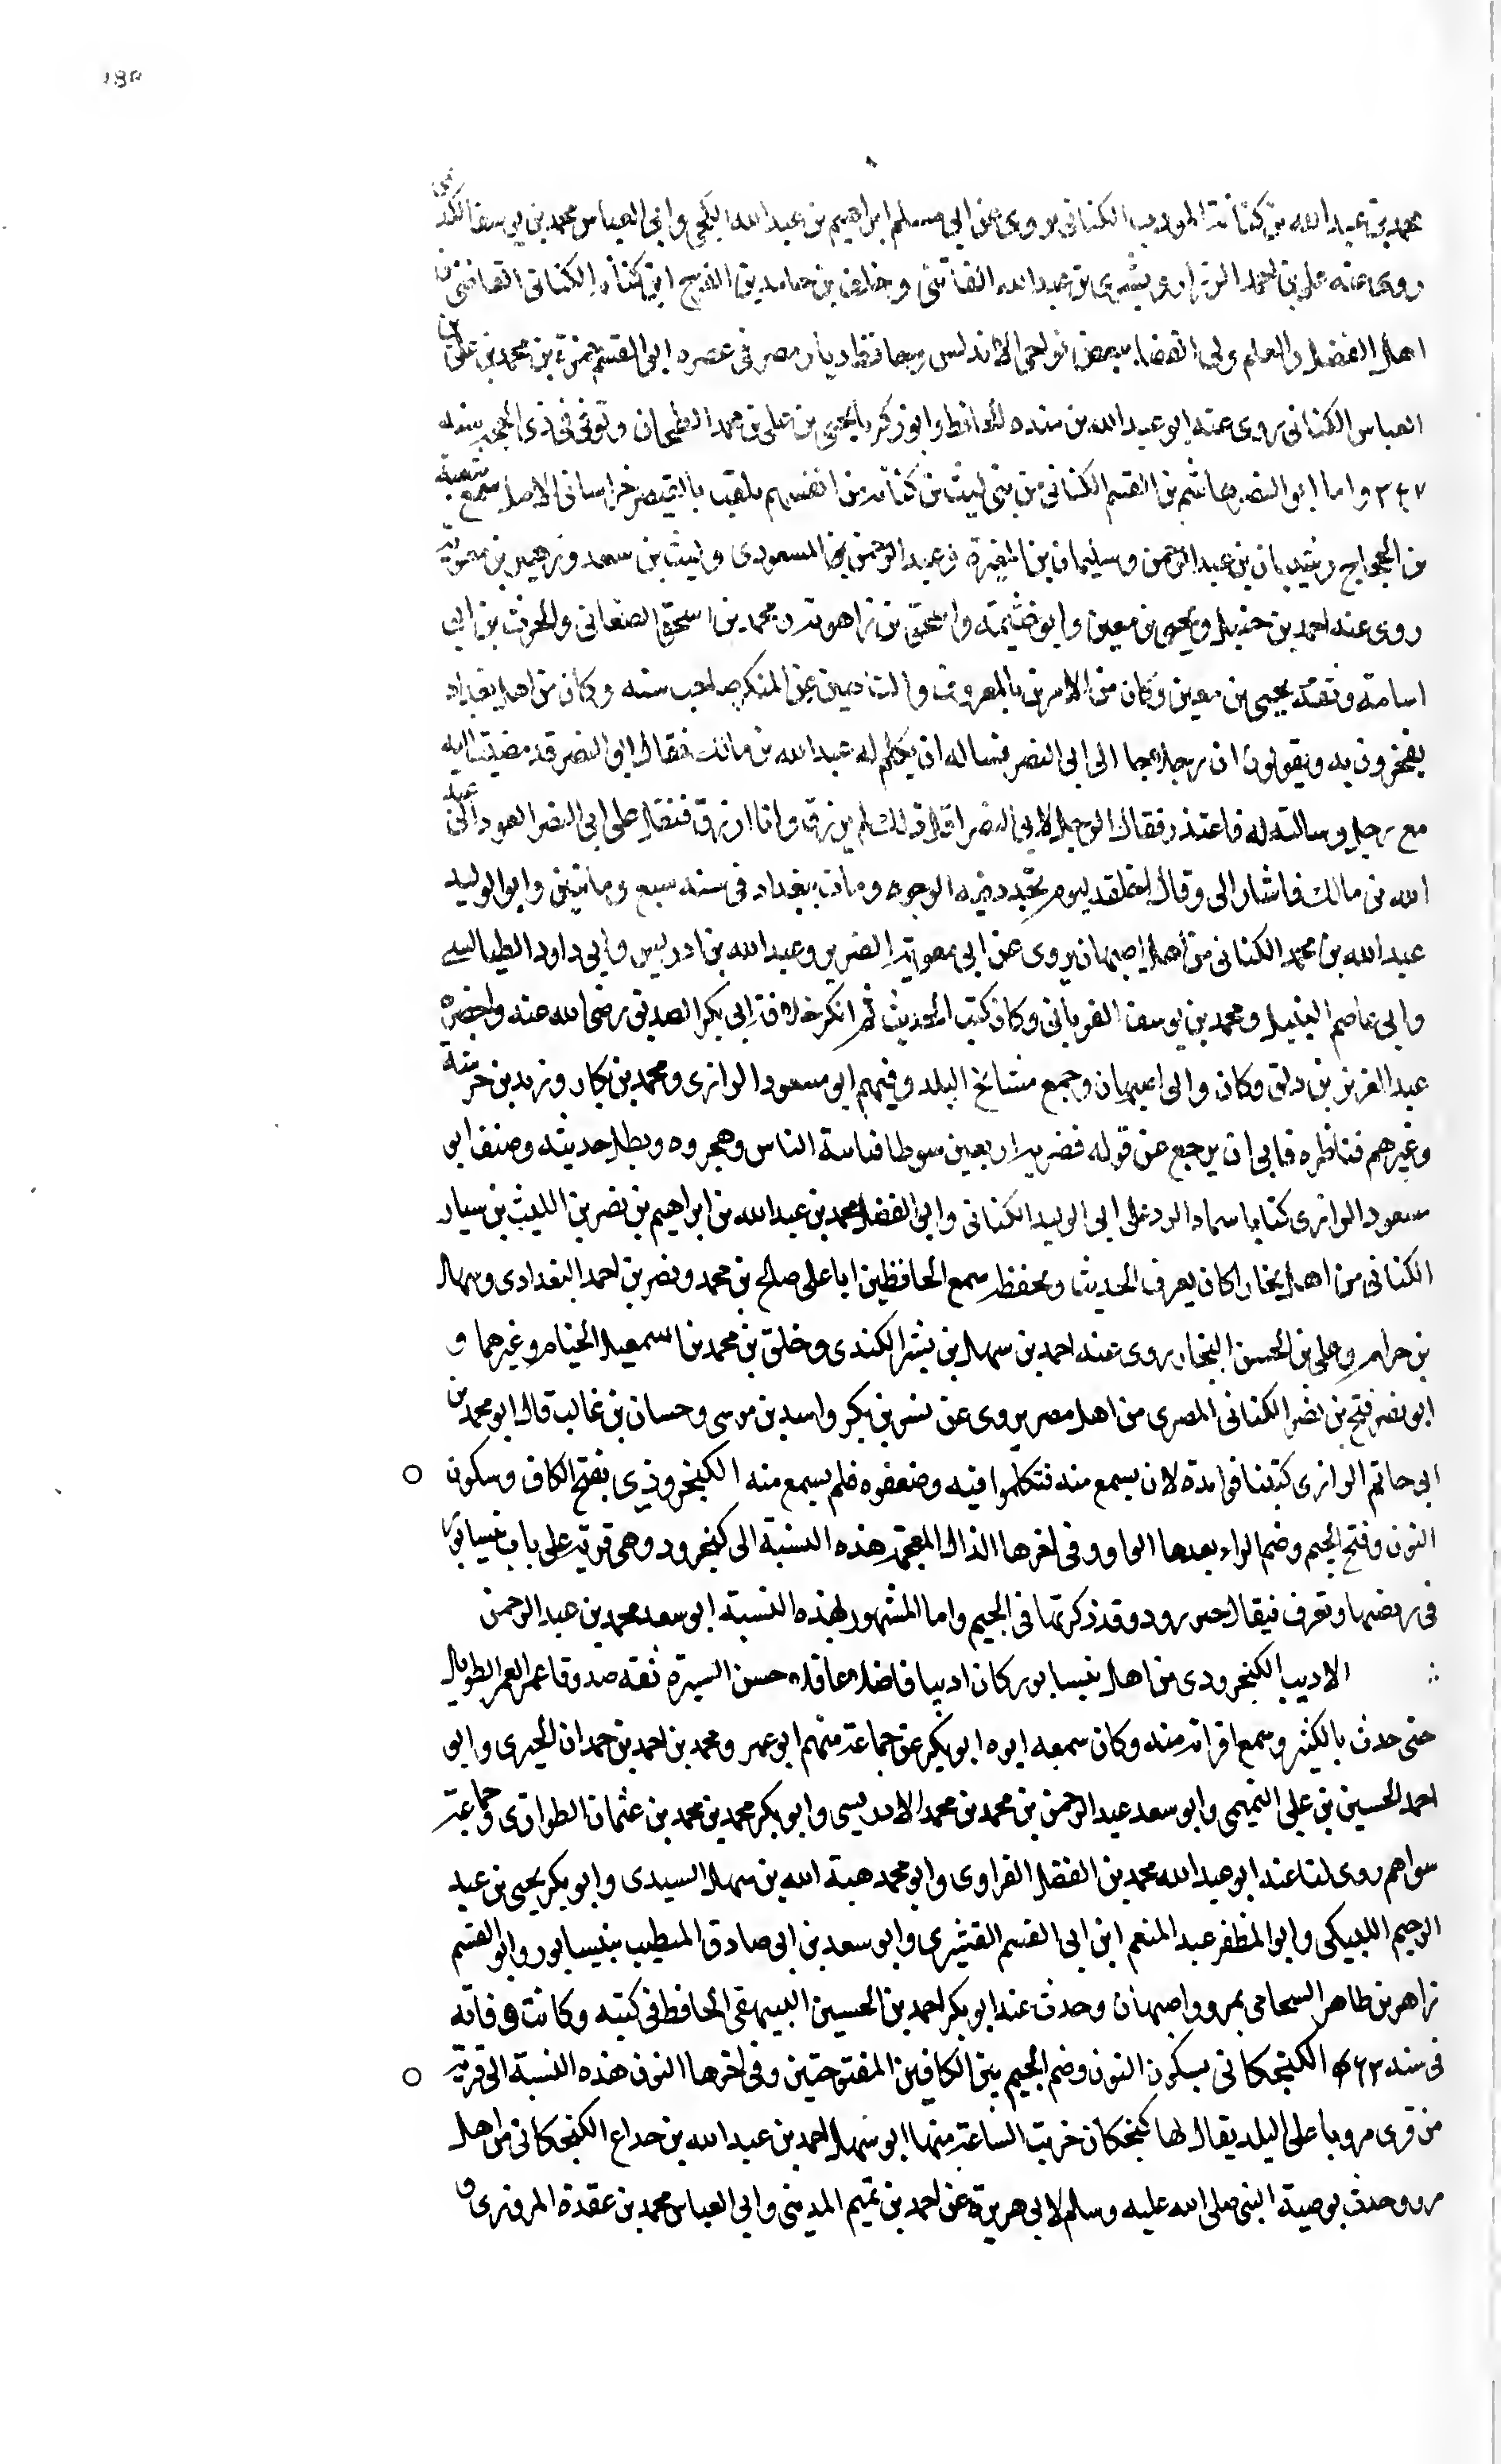 محمد بن عبد الله بن كنانة المودب الكنانى يروى عن ابى مسلم ابراهيم بن عبد الله الكجى وابى العباس محمد بن يوسف الكديمى
روى عنه على بن احمد الرزاز وبشرى بن عبد الله الفاتنى وخلف بن حامد بن الفرج ابن كنانه الكنانى القاضى من
اهل الفضل والعلم ولى القضا ببعض نواحى الاندلس وحافظ ديار مصر فى عصره ابو القسم حمزة بن محمد بن على بن
العباس الكنانى روى عنه ابو عبد الله بن منده الحافظ وابو زكريا يحيى بن على بن محمد الطحان وتوفى فى ذى الحجه سنه
٣٤٧ واما ابو النضر هاشم بن القسم الكنانى من بنى ليث بن كنانه من انفسهم يلقب بالقيصر خراسانى الاصل سمع شعبة
بن الحجاج وشيبان بن عبد الرحمن وسليمان بن المغيرة وعبد الرحمن المسعودى وليث بن سعد وزهير بن معوية
روى عنه احمد بن حنبل ويحيى بن معين وابو خثيمه واسحق بن راهويه ومحمد بن اسحق الصغانى والحرث بن ابى
اسامة وثقة يحيى بن معين وكان من الامرين بالمعروف والناهين عن المنكر صاحب سنه وكان من اهل بغداد
يفخرون به ويقولون ان رجلا جا الى ابى النضر فساله ان يكلم له عبد الله بن مالك فقال ابو النضر قد مضيت اليه
مع رجل وسالته له فاعتذر فقال الرجل لابى النضر ذلك لم يرزق وانا ارزق فثقل على ابى النضر العود الى عبد
الله بن مالك فاشار الى وقال اخلقه ليوم تجدد فيه الوجوه ومات ببغداد فى سنه سبع ومائتين وابو الوليد
عبد الله بن محمد الكنانى من اهل اصبهان يروى عن ابى معوية الضرير وعبد الله بن ادريس وابى داود الطيالسى
وابى عاصم النبيل ومحمد بن يوسف الفريانى وكان كتب الحديث ثم انكر خلافة ابى بكر الصديق رضى الله عنه واحضره
عبد العزيز بن دلف وكان والى اصبهان وجمع مشايخ البلد وفيهم ابو مسعود الرازى ومحمد بن بكار وزيد بن خرشة
وغيرهم فناظره فابى ان يرجع عن قوله فضربه اربعين سوطا فباينه الناس وهجروه وبطل حديثه وصنف ابو
مسعود الرازى كتابا سماه الرد على ابى الوليد الكنانى وابو الفضل محمد بن عبد الله بن ابراهيم بن نصر بن الليث بن سيار
الكنانى من اهل بخارا كان يعرف الحديث ويحفظ سمع الحافظين ابا على صالح بن محمد ونصر بن احمد البغدادى وسهل
بن وعلى بن الحسن البخار روى عنه احمد بن سهل بن بشر الكندى وخلق بن محمد بن اسمعيل الخيام وغيرهما و
ابو نصر فتح بن نصر الكنانى المصرى من اهل مصر يروى عن بشر بن بكر واسد بن موسى وحسان بن غالب قال ابو محمد بن
ابى حاتم الرازى كتبنا فوايده لان يسمع منه فتكلموا فيه وضعفوه فلم يسمع منه الكنجروذى بفتح الكاف وسكون
النون وفتح الجيم وضم الراء بعدها الواو وفى اخرها الذال المعجمة هذه النسبة الى كنجرود وهى قرية على باب نيسابور
فى ربضها وتعرف فيقال جنزرود وقد ذكرتها فى الجيم واما المشهور بهذه النسبة ابو سعد محمد بن عبد الرحمن
الاديب الكنجرودى من اهل نيسابور كان اديبا فاضلا عاقلا حسن السيرة ثقه صدوقا عمر العمر الطويل
حتى حدث بالكثير وسمع اقرانه منه وكان سمعه ابوه ابو بكر عن جماعة منهم ابو عمر ومحمد بن احمد بن حمدان الحيرى وابو
احمد الحسين بن على التميمى وابو سعد عبد الرحمن بن محمد بن محمد الادريسى وابو بكر محمد بن محمد بن عثمان الطرازى وجماعة
سواهم روى لنا عنه ابو عبد الله محمد بن الفضل الفراوى وابو محمد هبة الله بن سهل السيدى وابو بكر يحيى بن عبد
الرحيم اللبيكى وابو المظفر عبد المنعم ابن ابى القسم القشيرى وابو سعد بن ابى صادق المتطبب بنيسابور وابو القسم
زاهر بن طاهر السحامى بمرو واصبهان وحدث عنه ابو بكر احمد بن الحسين البيهقى الحافظ فى كتبه وكانت وفاته
فى سنه ٤٥٣ الكنجكانى بسكون النون وضم الجيم بين الكافين المفتوحتين وفى اخرها النون هذه النسبة الى قرية
من قرى مرو باعلى البلد يقال لها كنجكان خربت الساعة منها ابو سهل احمد بن عبد الله بن حداع الكنجكانى من اهل
مرو وحدث بوصية النبى صلى الله عليه وسلم لابى هريرة عن احمد بن تميم المدينى وابى العباس محمد بن عقدة المروزى و